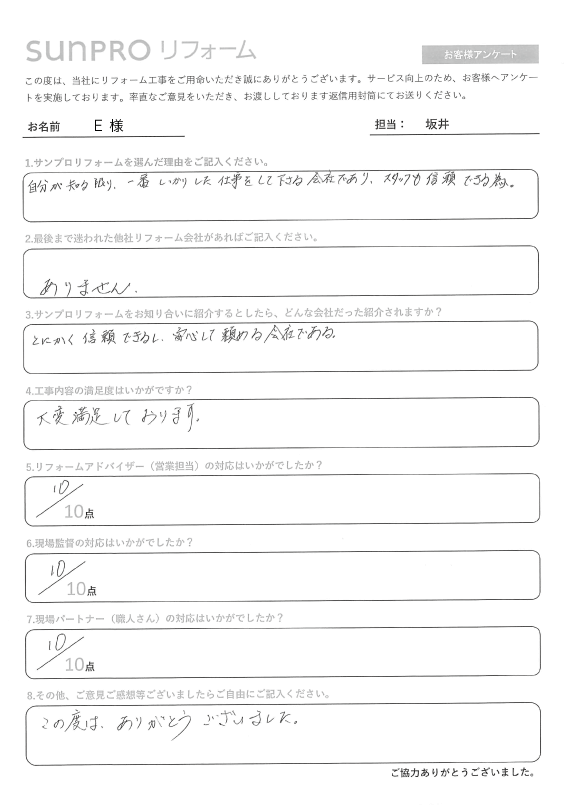 SUNPRO リフォーム
お客様アンケート
この度は、当社にリフォーム工事をご用命いただき誠にありがとうございます。サービス向上のため、お客様へアンケー
トを実施しております。率直なご意見をいただき、お渡ししております返信用封筒にてお送りください。
お名前 E 様 担当： 坂井
1.サンプロリフォームを選んだ理由をご記入ください。
自分が知る限り、一番しっかりした仕事をして下さる会社であり、スタッフも信頼できる為。
2.最後まで迷われた他社リフォーム会社があればご記入ください。
ありません。
3.サンプロリフォームをお知り合いに紹介するとしたら、どんな会社だった紹介されますか？
とにかく信頼できるし、安心して頼める会社である。
4.工事内容の満足度はいかがですか？
大変満足しております。
5.リフォームアドバイザー（営業担当）の対応はいかがでしたか？
10/10点
6.現場監督の対応はいかがでしたか？
10/10点
7.現場パートナー（職人さん）の対応はいかがでしたか？
10/10点
8.その他、ご意見ご感想等ございましたらご自由にご記入ください。
この度は、ありがとうございました。
ご協力ありがとうございました。